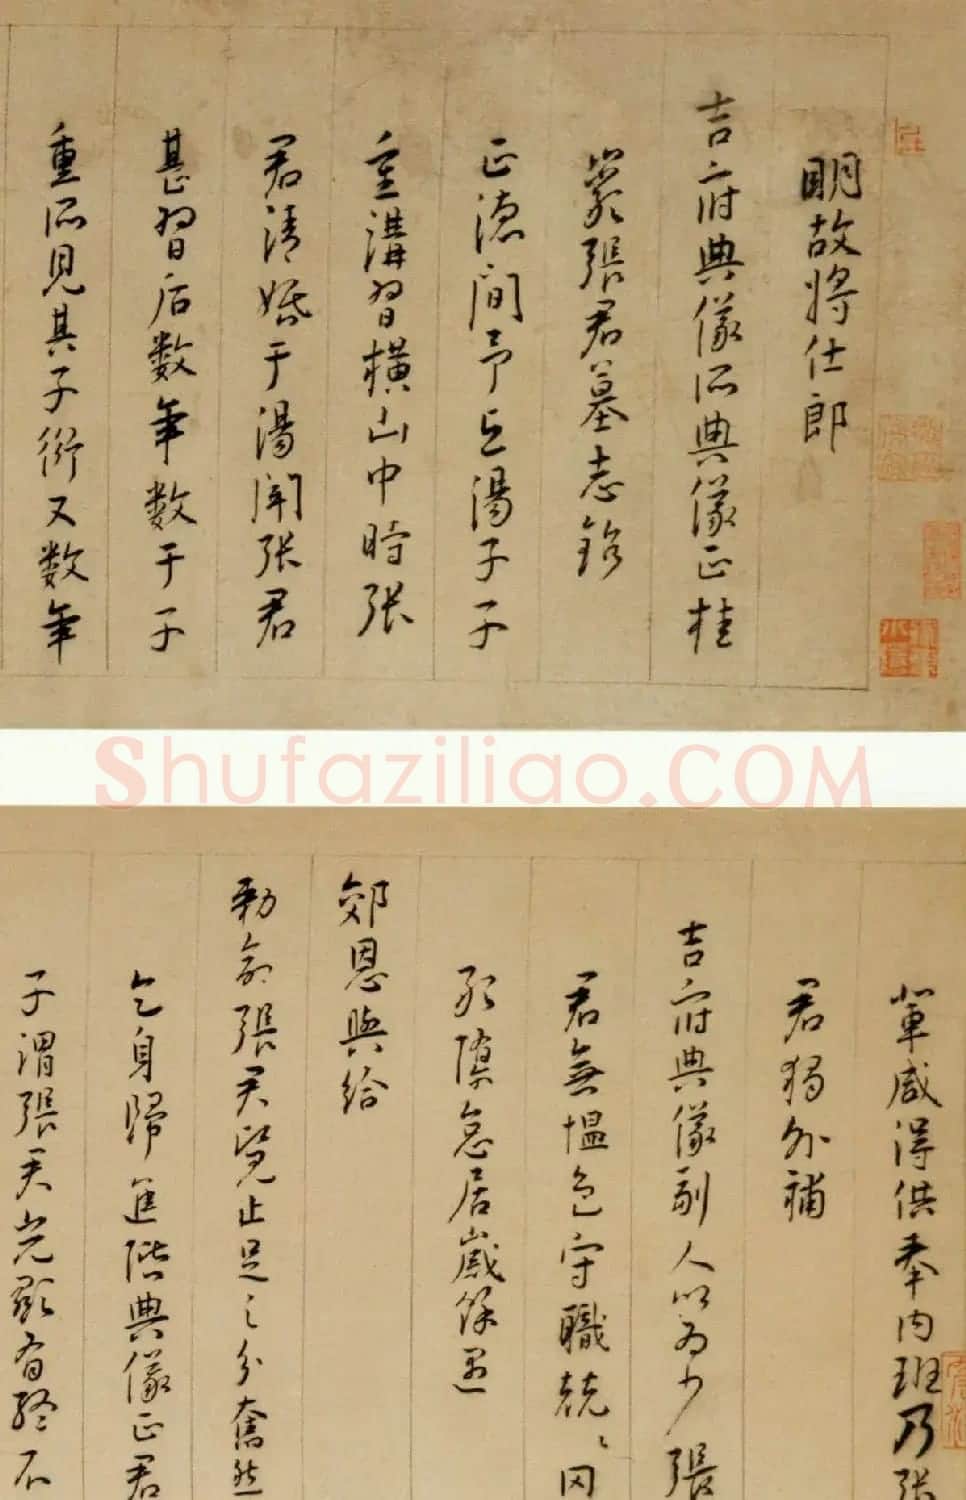 明故將仕郎
吉府典儀所典儀正桂
巖張君墓志銘
正德間予與湯子子
重講習橫山中時張
君清婚于湯聞張君
甚習后数年数于子
重所見其子衍又数年
Shufaziliao.COM
輩咸得供奉内班乃張
君獨外補
吉府典儀副人以為少張
君無慍色守職兢兢罔
敢隳怠居歲餘遇
郊恩與給
勅命張君覽止足之分奮然
乞身歸進階典儀正君
子謂張君光顯有終不